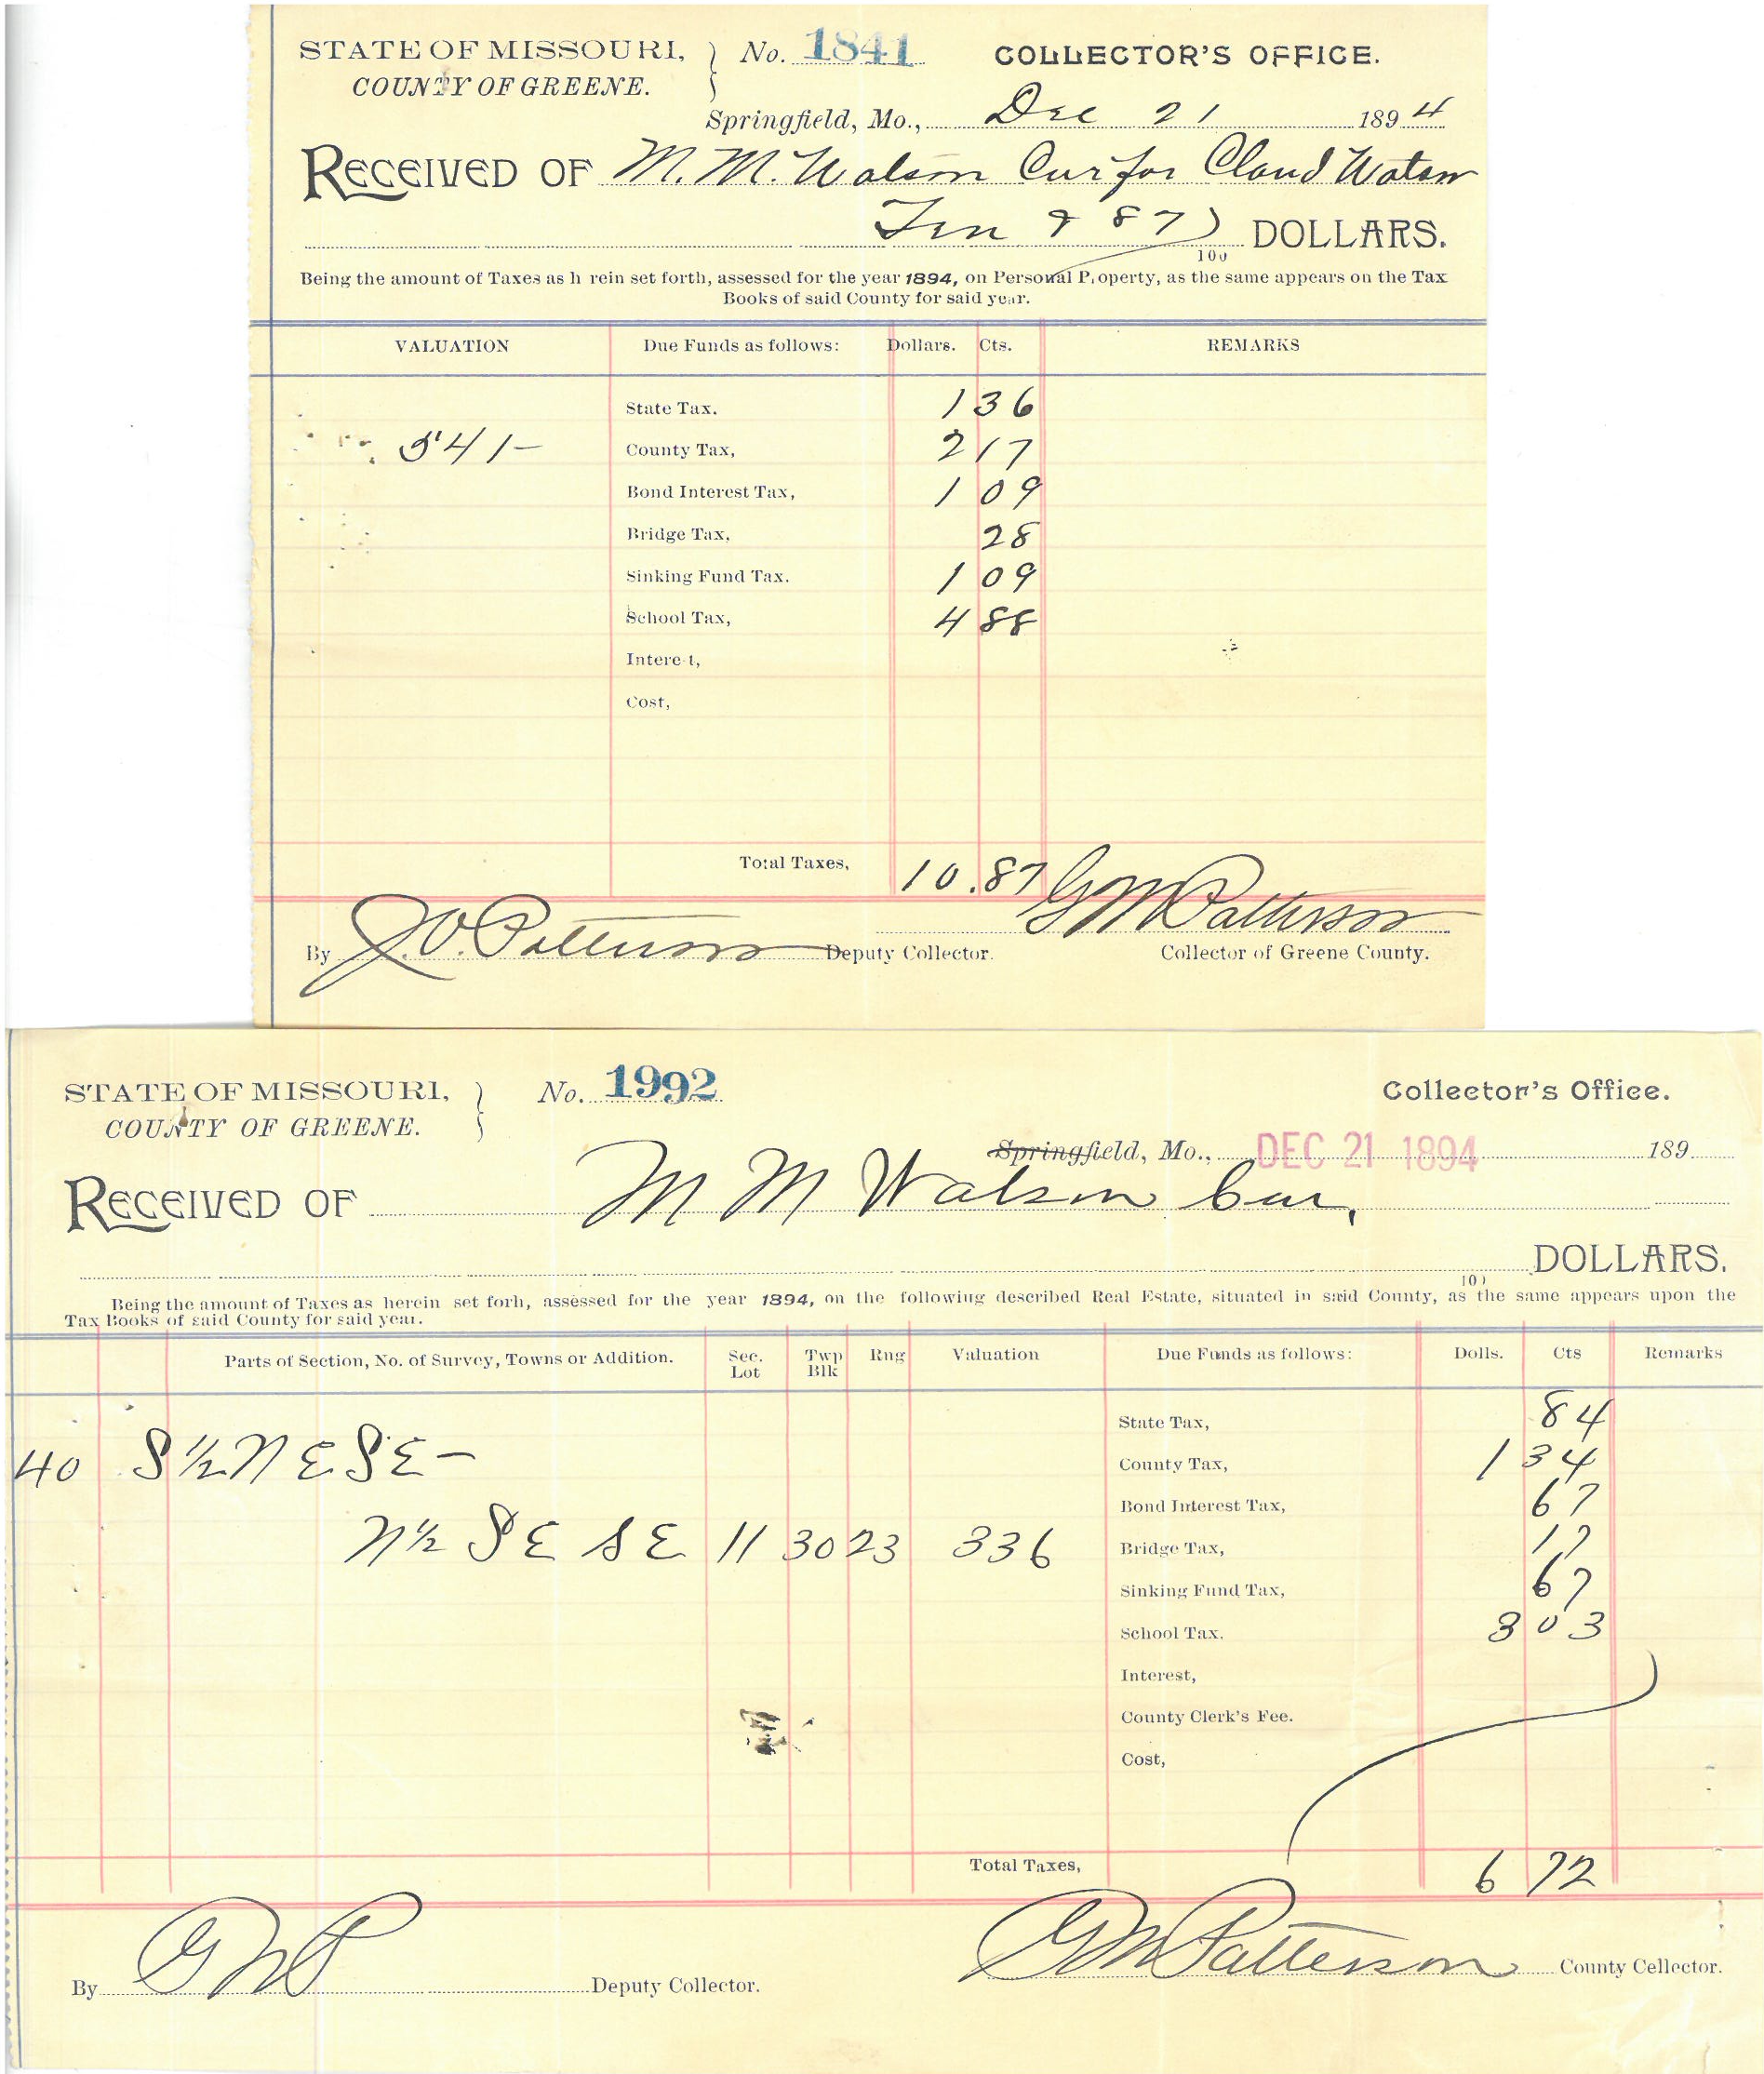 STATE OF MISSOURI, } No. 1841 COLLECTOR'S OFFICE.
COUNTY OF GREENE.
Springfield, Mo., Dec 21 1894
RECEIVED OF M. M. Watson Cur for Claud Watson
Ten & 87/100 DOLLARS.
Being the amount of Taxes as h rein set forth, assessed for the year 1894, on Personal Property, as the same appears on the Tax
Books of said County for said year.
VALUATION Due Funds as follows: Dollars. Cts. REMARKS
State Tax. 1 36
541- County Tax, 2 17
Bond Interest Tax, 1 09
Bridge Tax, 28
Sinking Fund Tax. 1 09
School Tax, 4 88
Intere t,
Cost,
Total Taxes, 10.87
By J.O. Patterson Deputy Collector. G M Patterson Collector of Greene County.
STATE OF MISSOURI, } No. 1992 Collector's Office.
COUNTY OF GREENE.
Springfield, Mo., DEC 21 1894 189
RECEIVED OF M M Watson Cur,
DOLLARS.
10)
Being the amount of Taxes as herein set forh, assessed for the year 1894, on the following described Real Estate, situated in said County, as the same appears upon the
Tax Books of said County for said year.
Parts of Section, No. of Survey, Towns or Addition. Sec. Lot Twp Blk Rng Valuation Due Funds as follows: Dolls. Cts Remarks
State Tax, 84
40 S ½ N E S E - County Tax, 1 34
Bond Interest Tax, 67
N ½ S E S E 11 30 23 336 Bridge Tax, 17
Sinking Fund Tax, 67
School Tax. 3 03
Interest,
County Clerk's Fee.
Cost,
Total Taxes, 6 72
By G M P Deputy Collector. G M Patterson County Cellector.